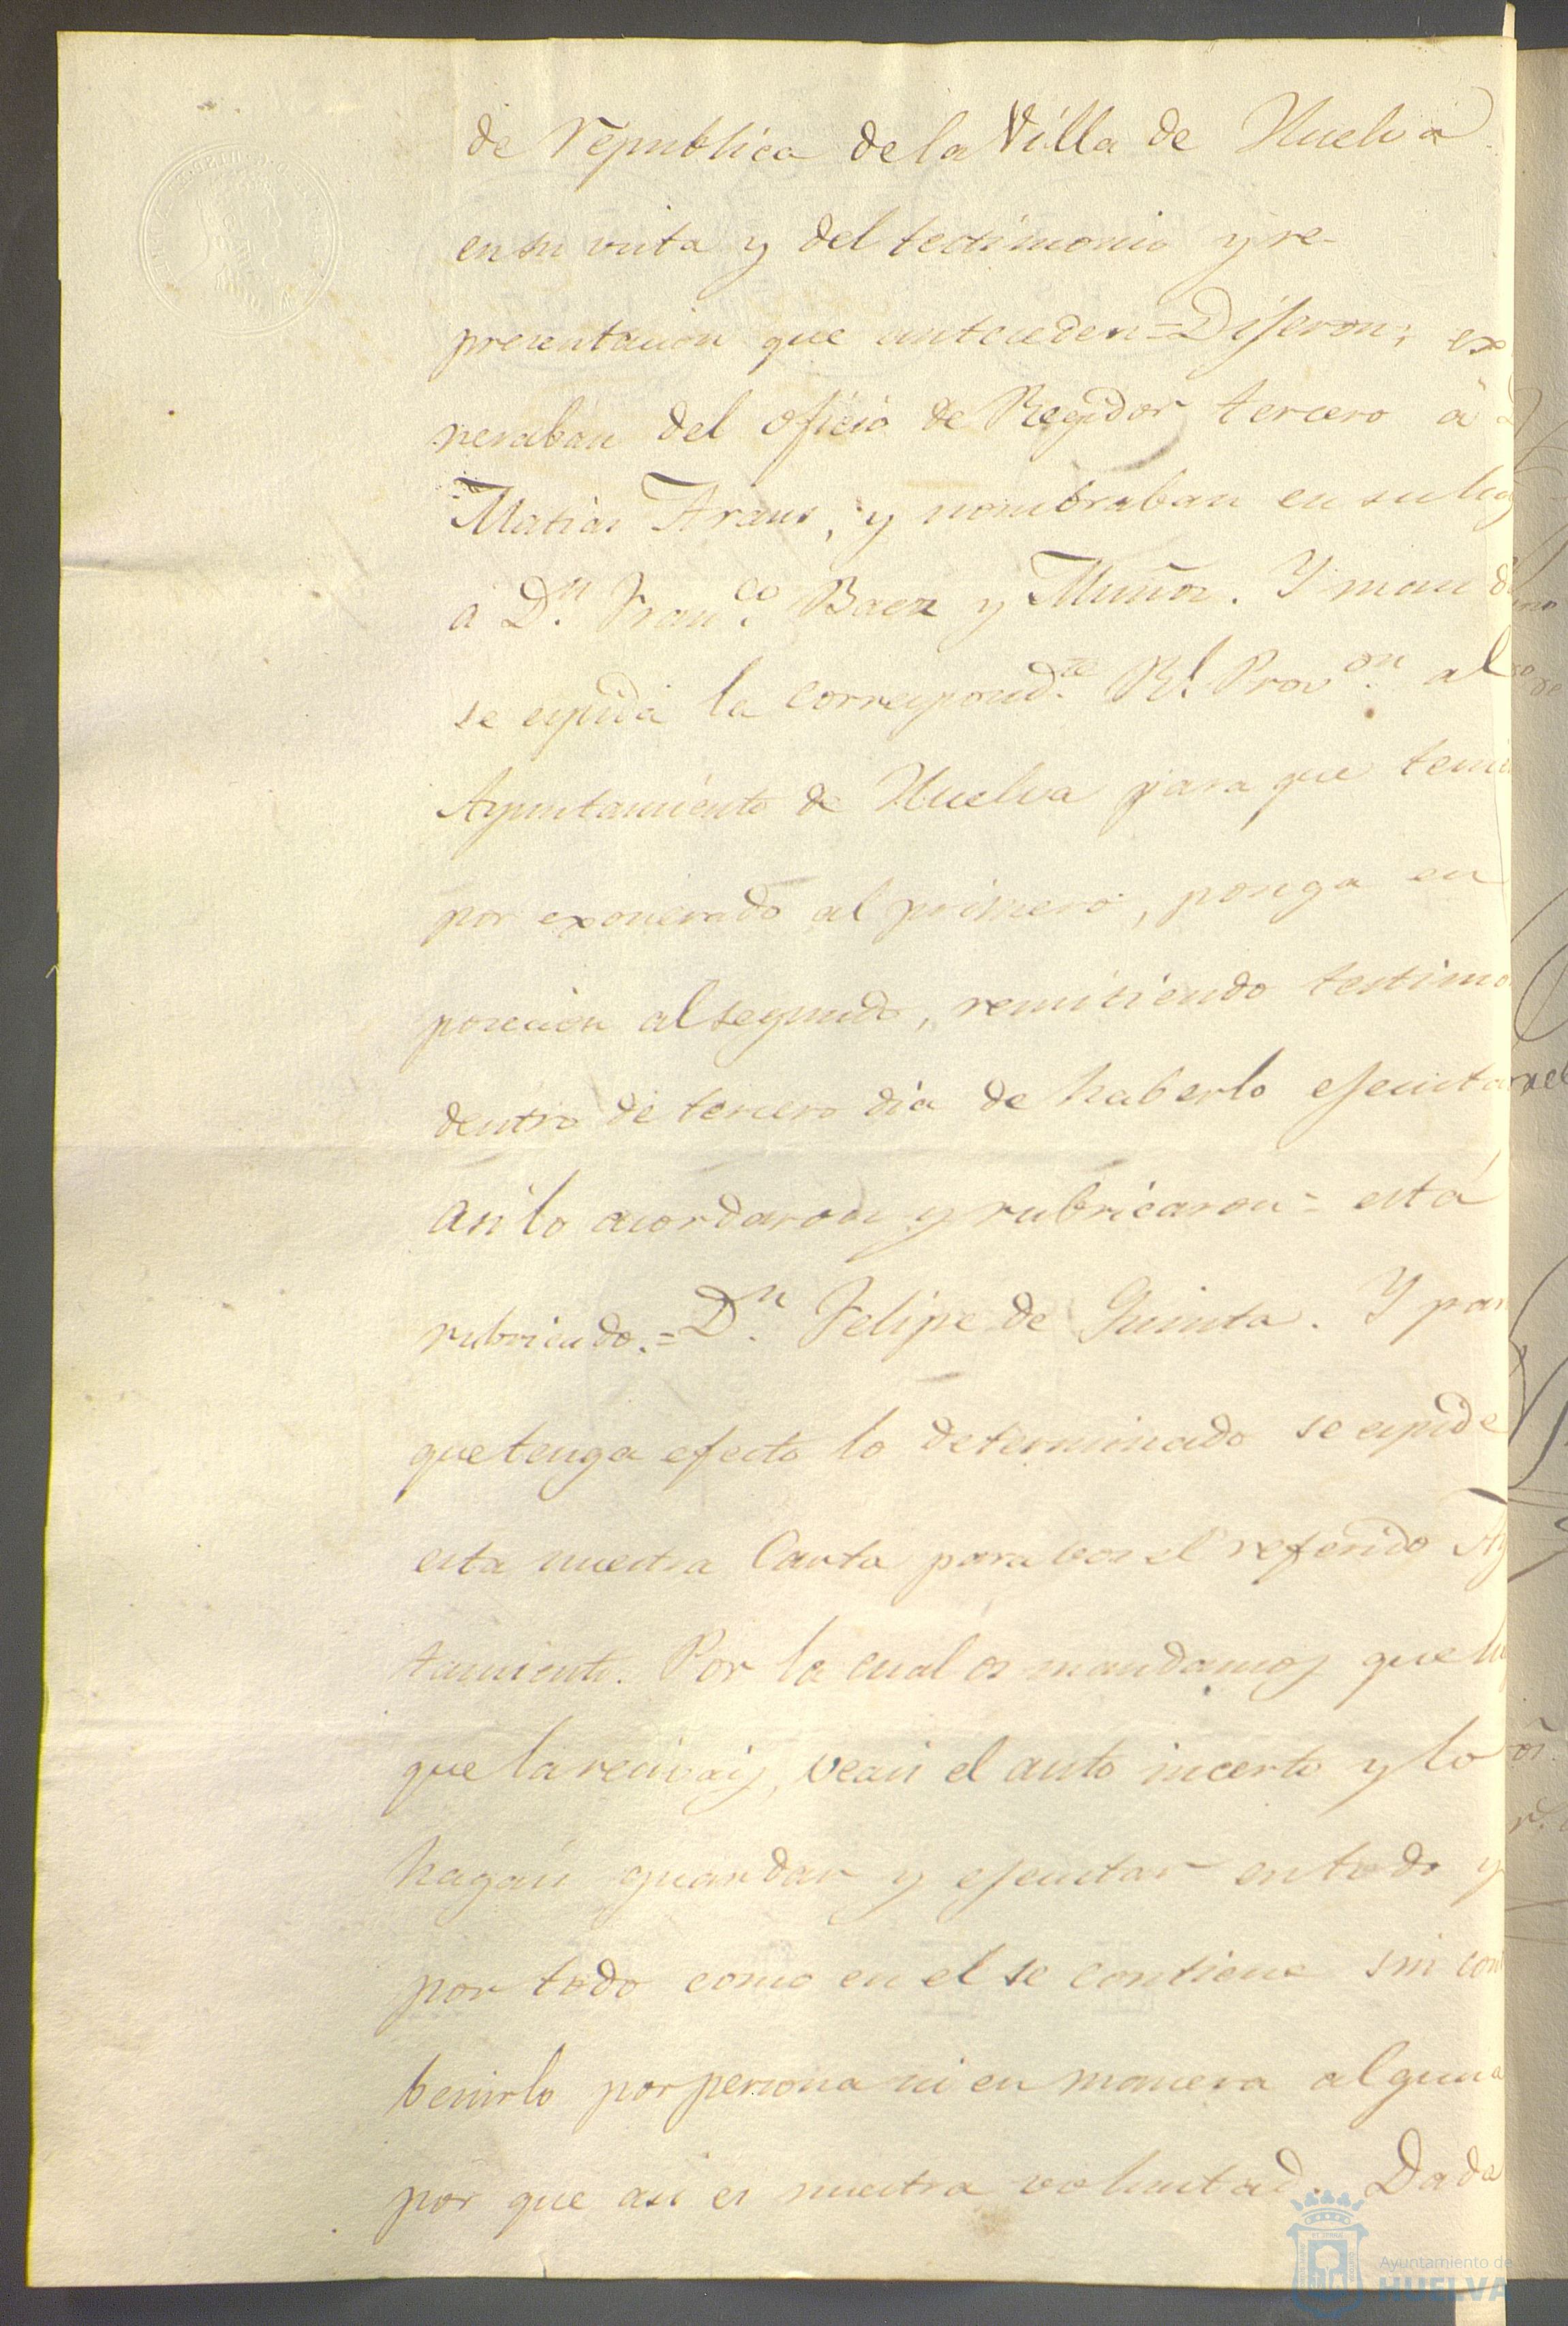 de republica de la Villa de Huelva
en su vista y del testimonio y re-
presentacion que anteceden = Dijeron; ex
neraban del oficio de Regidor tercero a D
Matias Araus, y nombraban en su lug
a Dn. Franco. Baez y Muñoz. Y mand
se espida la correspondte. Rl. Provon. al
Ayuntamiento de Huelva para que teni
por exonerado al primero, ponga en
posecion al segundo, remitiendo testimo
dentro de tercero dia de haberlo ejecuta
asi lo acordaron y rubricaron = está
rubricado. = Dn. Felipe de Quinta. Y par
que tenga efecto lo determinado se espide
esta nuestra Carta para vos el referido Ay
tamiento. Por la cual os mandamos que lu
que la recivais, veais el auto incerto y lo
hagais guardar y ejecutar en todo y
por todo como en el se contiene sin con
benirlo por persona ni en manera alguna
por que asi es nuestra voluntad. Dada
Ayuntamiento de
HUELVA